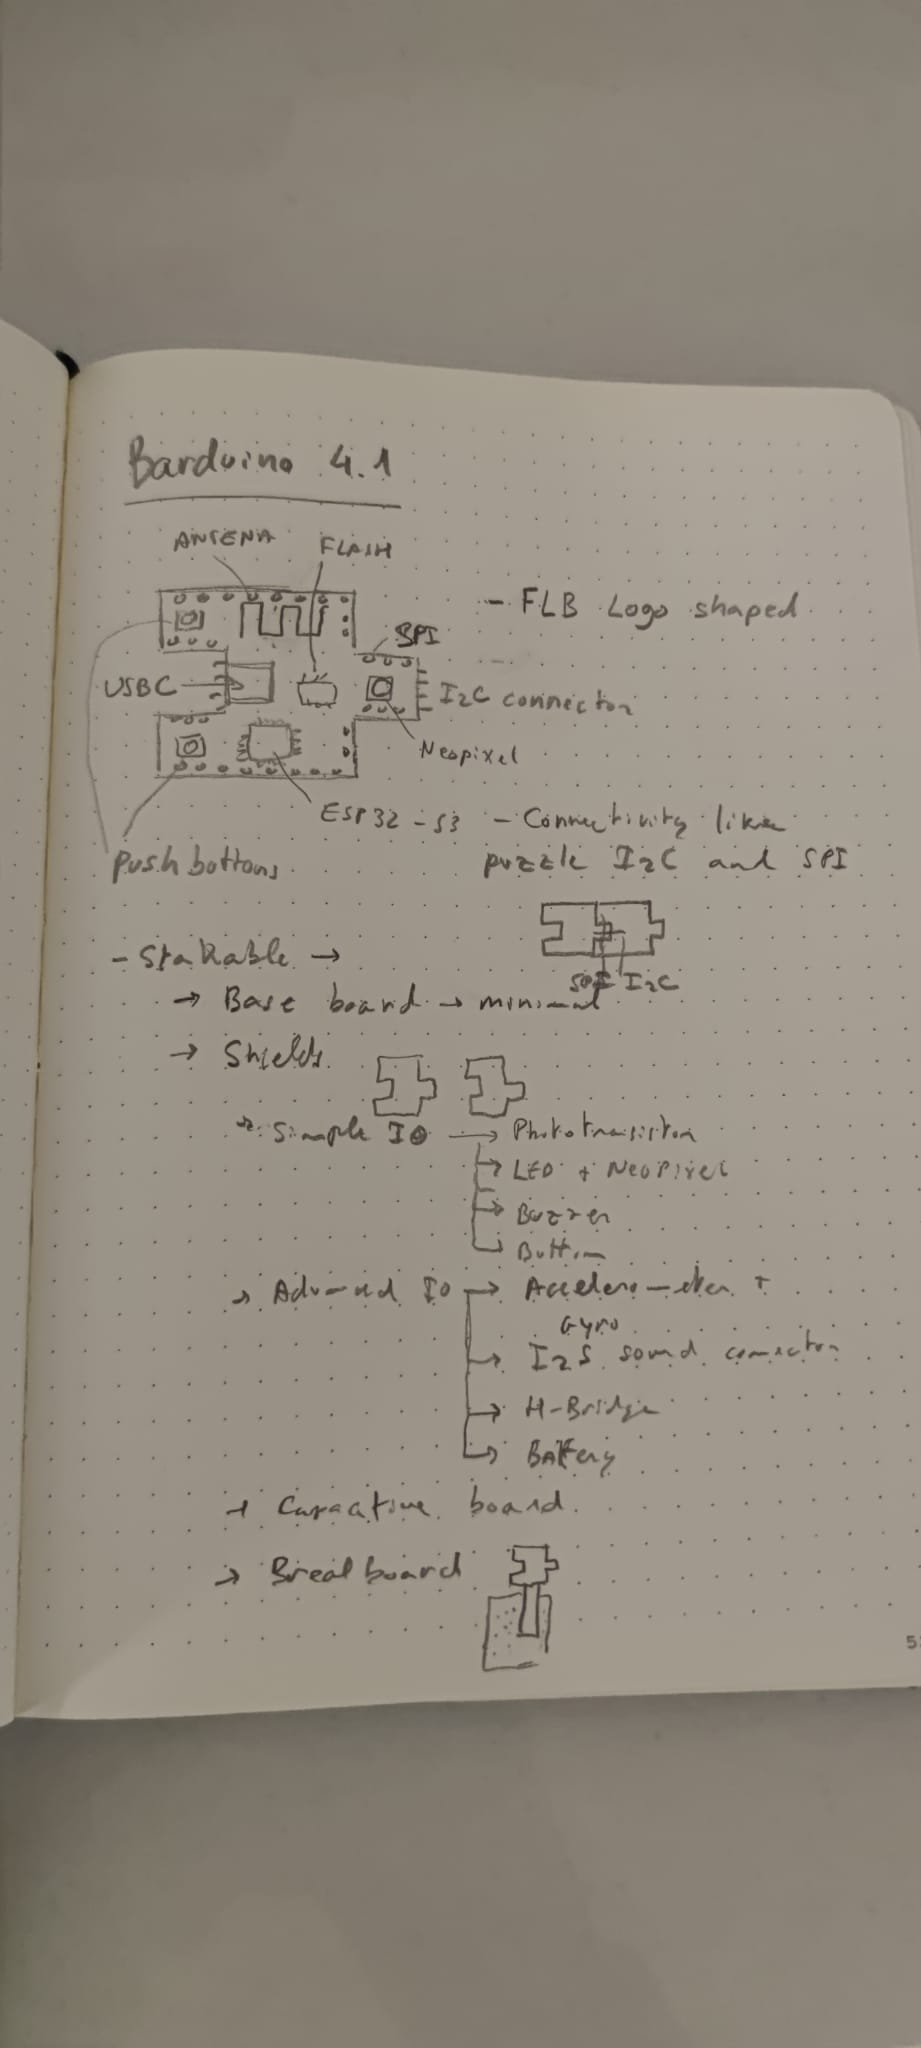 Barduino 4.1
ANTENA FLASH
- FLB Logo shaped
SPI
USBC
I2C connector
Neopixel
ESP32-S3
- Connectivity like
puzzle I2C and SPI
push bottons
SPI I2C
- Stakable →
→ Base board → minimal
→ Shields
→ Simple IO → Phototransistor
→ LED + NeoPixel
→ Buzzer
→ Button
→ Advanced IO → Accelerometer +
Gyro
→ I2S sound connector
→ H-Bridge
→ Battery
→ Capacitive board
→ Breadboard